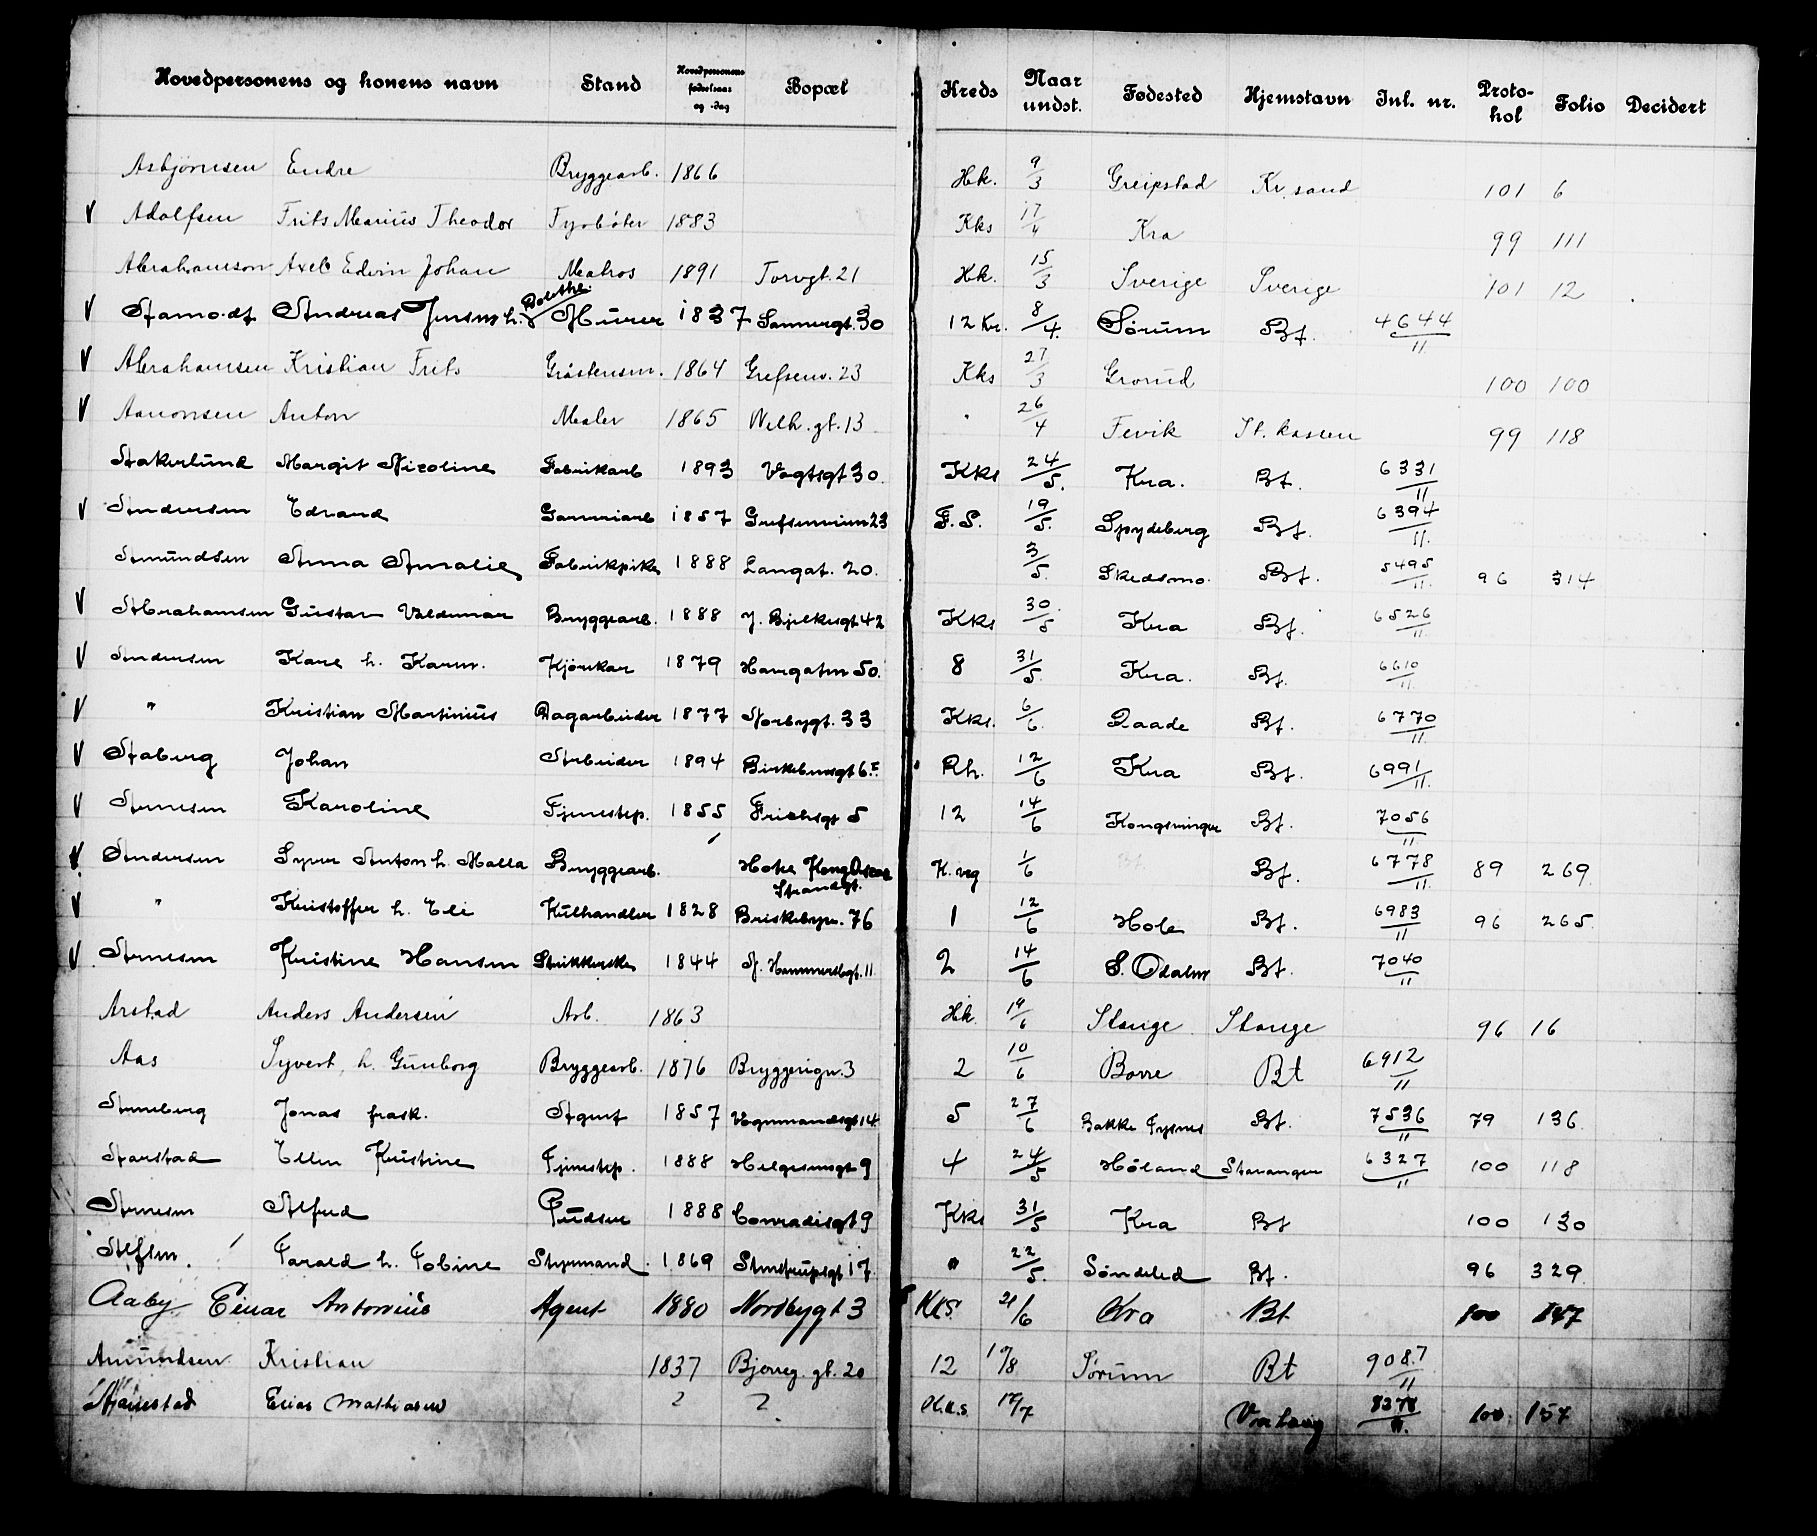 Hovedpersonens og konens navn Stand Hovedpersonens fødselsaar og -dag Bopæl Kreds Naar undst. Fødested Hjemstavn Inl. nr. Protokol Folio Decidert
Asbjørnsen Endre Bryggearb. 1866 Hk. 9/3 Greipstad Kr.sand 101 6
V Adolfsen Frits Marius Theodor Fyrbøter 1883 Kks 17/4 Kra 99 111
Abrahamson Axel Edvin Johan Matros 1891 Torvgt. 21 Hk. 15/3 Sverige Sverige 101 12
V Andreas Jensen h. Murer 1837 Sannergt. 30 12 Kr. 8/4. Sørum Bt. 4644/11
V Abrahamsen Kristian Frits Gråstensm. 1864 Grefsenv. 23 Kks 27/3 Grorud 100 100
V Aanonsen Anton Maler 1865 Wilh. gt. 13 " 26/4 Fevik 99 118
Akerlund Margit Nicoline Fabrikarb 1893 Vogtsgt 30. Kks 24/5. Kra. Bt. 6331/11
V Andersen Edvard Garveriarb 1857 Grefsenveien 23 F. S. 19/5. Spydeberg Bt. 6394/11.
Amundsen Anna Amalie Fabrikpike 1888 Langgt. 20. 3/5. Skedsmo. Bt. 5495/11. 96 314
V Abrahamsen Gustav Valdemar Bryggearb. 1888 J. Bjelkesgt 42 Kks 30/5 Kra Bt. 6526/11.
V Andersen Karl h. Karen. Kjørekar 1879 Havgaten 50. 8 31/5. Kra. Bt. 6610/11
V " Kristian Martinius Dagarbeider 1877 Norbygt. 33 Kks. 6/6. Raade Bt. 6770/11.
V Aaberg Johan Arbeider 1894 Birkebensgt 6. Rh. 12/6 Kra Bt. 6991/11.
V Arnesen Karoline Tjenestep. 1855 Frichsgt 5 12 14/6 Kongsvinger Bt. 7056/11.
V Andersen Syver Anton h. Malla Bryggearb. Hotel Kong Oscar Strandgt. K. veg 1/6 Bt. 6778/11. 89 269.
V " Kristoffer h. Eli Kulhandler 1828 Briskebyv. 76 1 12/6 Hole Bt. 6983/11 96 265.
V Arnesen Kristine Hansen Strikkerske 1844 Hammersbgt. 11 2 14/6 S. Odalen Bt. 7040/11
Arstad Anders Andersen Arb. 1863 Hk. 19/6 Stange Stange 96 16
Aas Syvert, h. Gunborg Bryggearb. 1876 Bryggerign. 3 2 10/6 Borre Bt 6912/11
Arneberg Jonas frask. Agent 1857 Vognmandsgt 14 5 27/6 Bakke Fysnes Bt. 7536/11 79 136.
Aarstad Ellen Kristine Tjenestep. 1888 Helgesensgt 9 4 24/5 Høland Stavanger 6327/11 100 118
Arnesen Alfred Pudser 1888 Conradisgt 9 Kks 31/5 Kra Bt 100 130
Alfsen. Tarald h. Tobine Styrmand. 1869 Steenstrupsgt 17. " 22/5. Søndeled Bt. 96 329.
Aaby Einar Antonius Agent 1880 Nordbygt 3 KKS. 21/6 Kra Bt 100 147
Amundsen Kristian 1837 Bjerreg. gt. 20 12 19/8 Sørum Bt 9087/11
Elias Mathiasen ? ? K.K.S. 17/7 8378/11. 100. 157